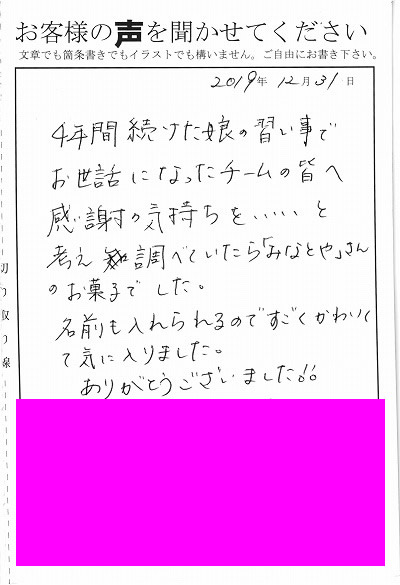 お客様の声を聞かせてください
文章でも箇条書きでもイラストでも構いません。ご自由にお書き下さい。
2019年 12月 31日
4年間続けた娘の習い事で
お世話になったチームの皆へ
感謝の気持ちを・・・・・と
考え 調べていたら「みなとや」さん
のお菓子でした。
名前も入れられるのですごくかわいく
て気に入りました。
ありがとうございました!!
切り取り線